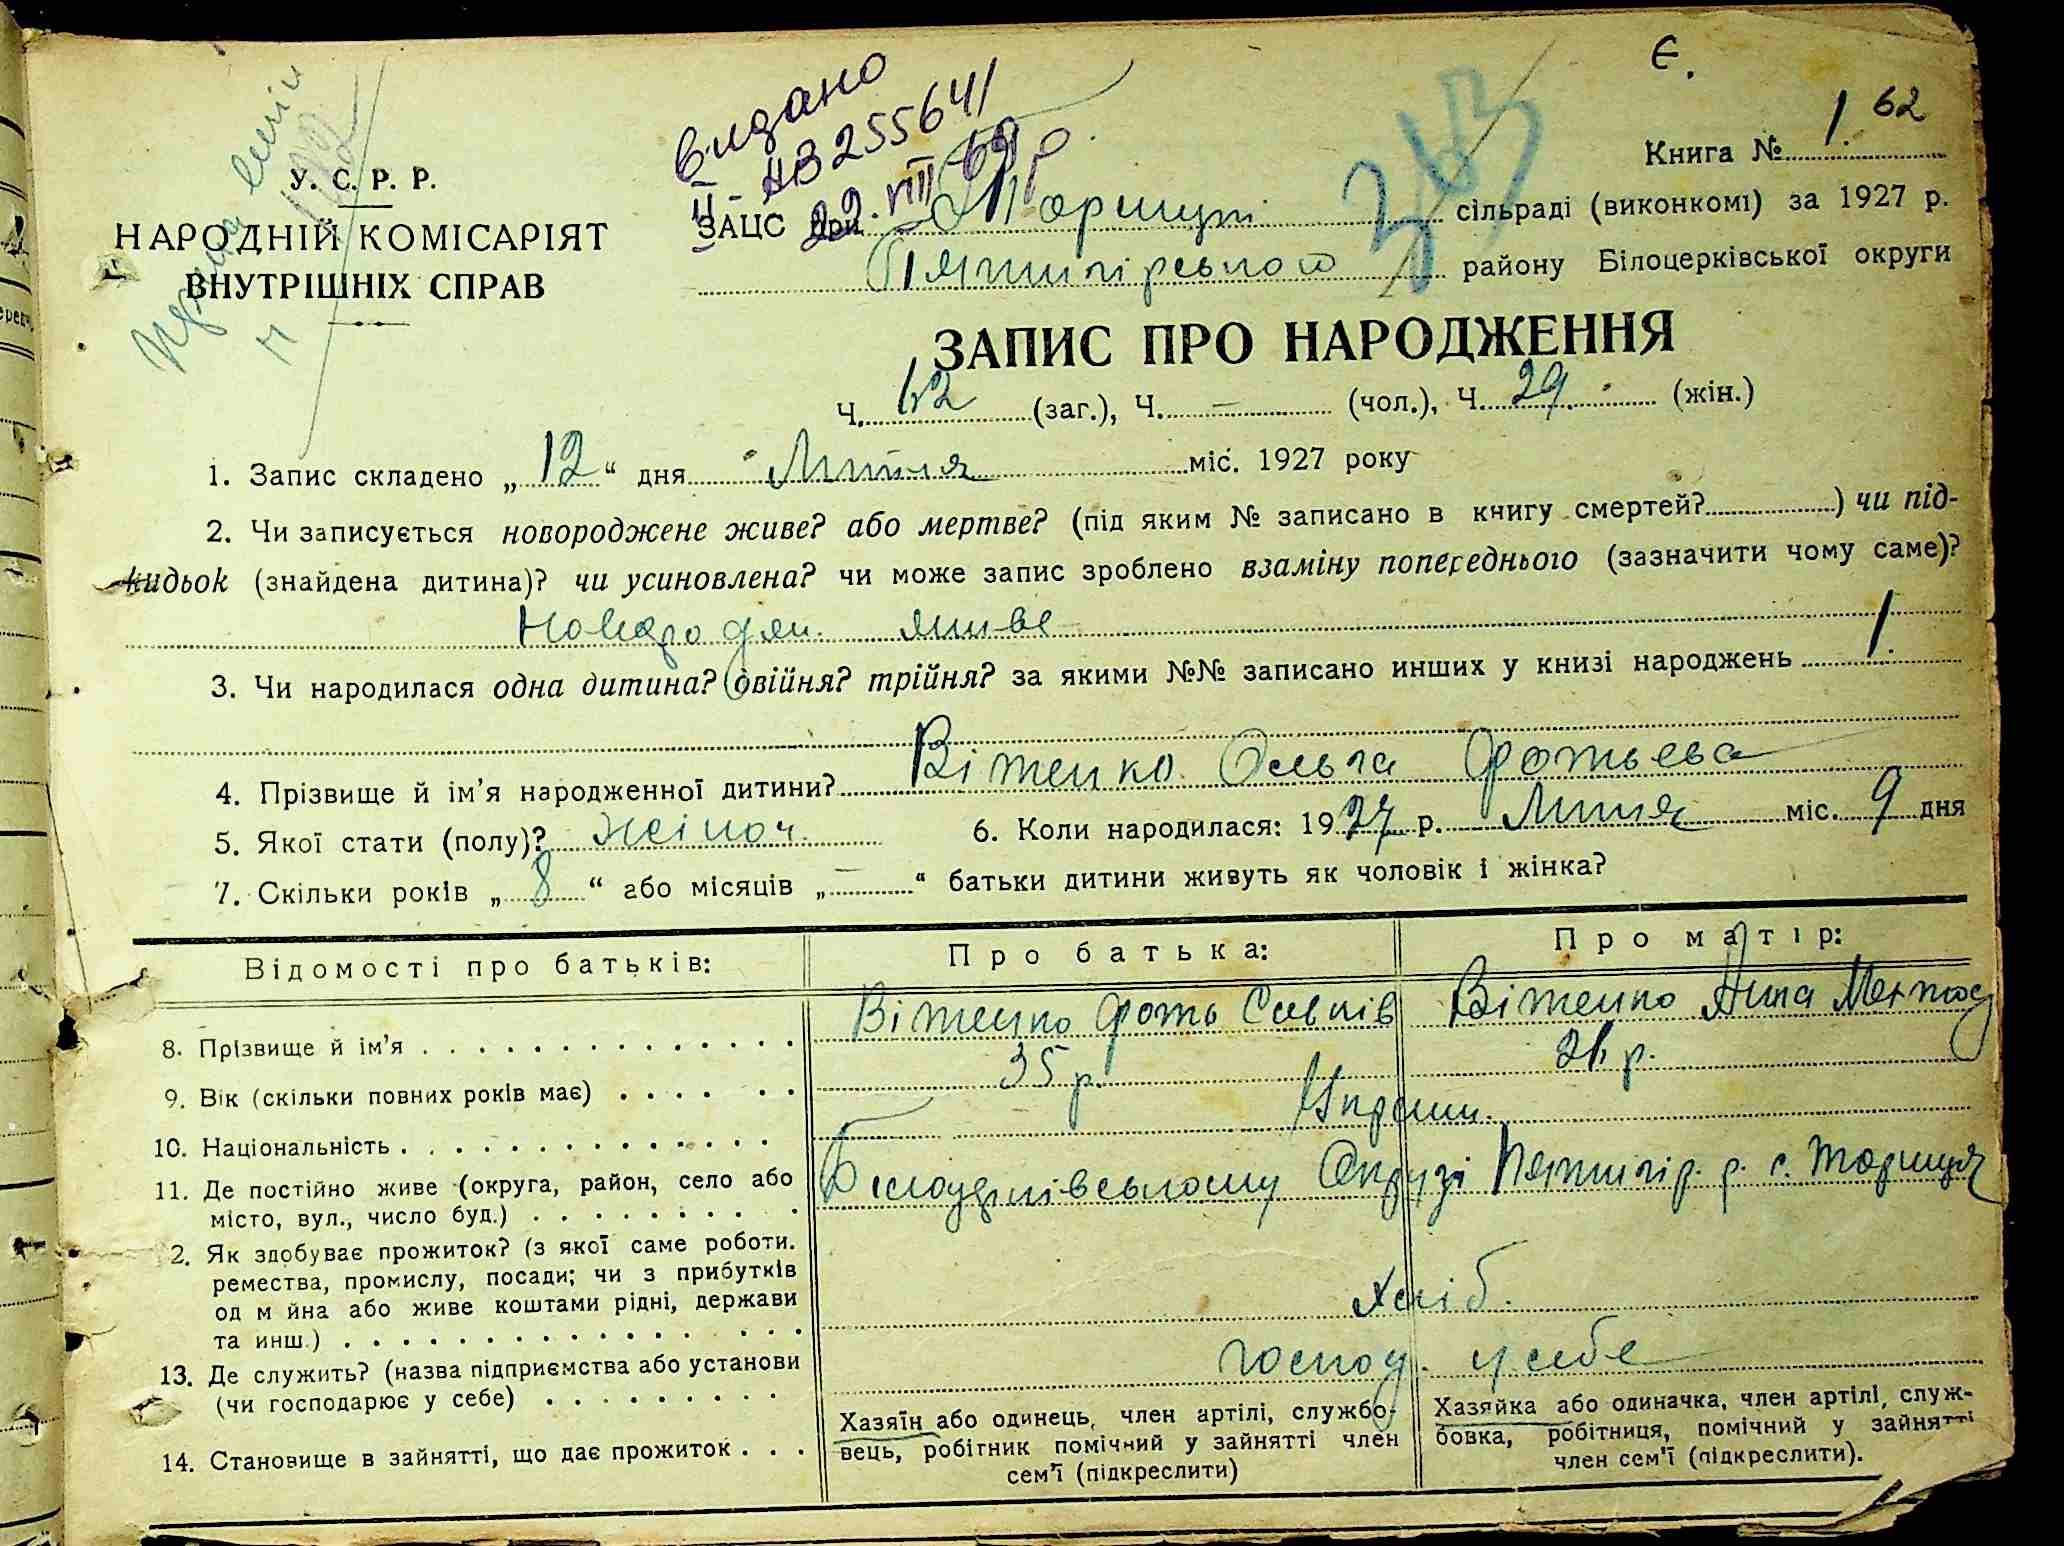 Є.
62
Книга № 1.
видано
ІІ- АВ 255641
22.VIII 69 р.
У. С. Р. Р.
НАРОДНІЙ КОМІСАРІЯТ
ВНУТРІШНІХ СПРАВ
ЗАЦС при Торицькі сільраді (виконкомі) за 1927 р.
Пятигірського району Білоцерківської округи
ЗАПИС ПРО НАРОДЖЕННЯ
Ч. 62 (заг.), Ч. — (чол.), Ч. 29. (жін.)
1. Запис складено „ 12 “ дня Липня міс. 1927 року
2. Чи записується новороджене живе? або мертве? (під яким № записано в книгу смертей? ) чи під-
кидьок (знайдена дитина)? чи усиновлена? чи може запис зроблено взаміну попереднього (зазначити чому саме)?
Новородж. живе
3. Чи народилася одна дитина? двійня? трійня? за якими №№ записано инших у книзі народжень 1.
4. Прізвище й ім’я народженної дитини? Вітенко Ольга Фотьева
5. Якої стати (полу)? жіноч. 6. Коли народилася: 1927 р. Липня міс. 9 дня
7. Скільки років „ 8 “ або місяців „ — “ батьки дитини живуть як чоловік і жінка?
Відомості про батьків: Про батька: Про матір:
8. Прізвище й ім’я Вітенко Фоть Савків Вітенко Анна
9. Вік (скільки повних років має) 35 р. р.
10. Національність Украин.
11. Де постійно живе (округа, район, село або
місто, вул., число буд.) Білоцерківському Окрузі Пятигір. р. с. Ториця
2. Як здобуває прожиток? (з якої саме роботи.
ремества, промислу, посади; чи з прибутків
од м йна або живе коштами рідні, держави
та инш.) Хліб.
13. Де служить? (назва підприємства або установи
(чи господарює у себе) господ. у себе
14. Становище в зайнятті, що дає прожиток
Хазяїн або одинець, член артілі, службо-
вець, робітник помічний у зайнятті член
сем’ї (підкреслити)
Хазяйка або одиначка, член артілі, служ-
бовка, робітниця, помічний у зайнятті
член сем’ї (підкреслити).